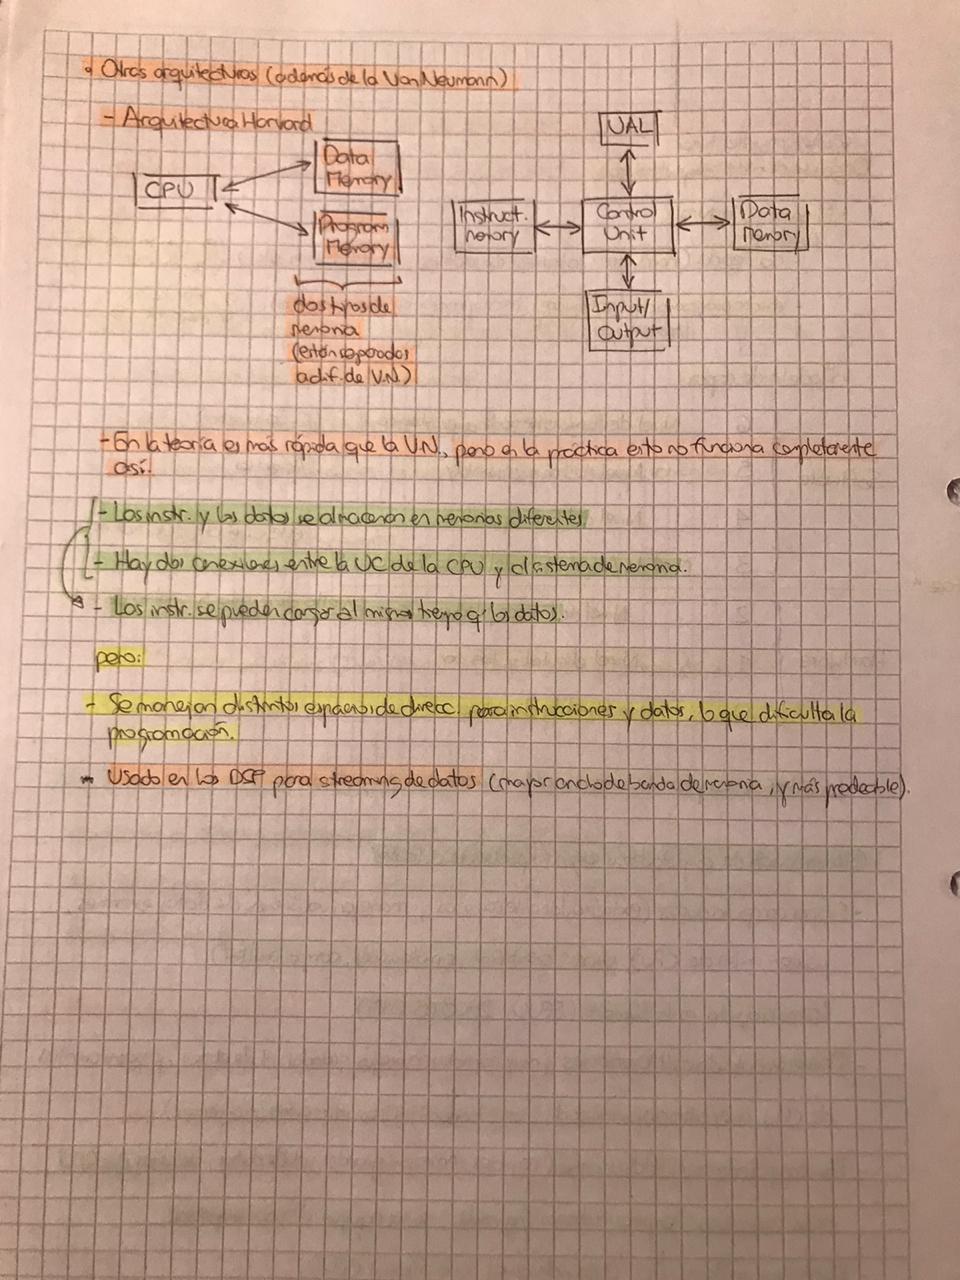 • Otras arquitecturas (además de la Von Neumann)
- Arquitectura Harvard
CPU
Data
Memory
Program
Memory
dos tipos de
memoria
(están separados
a dif. de V.N.)
UAL
Instruct.
memory
Control
Unit
Data
memory
Input/
Output
- En la teoría es más rápida que la V.N., pero en la práctica esto no funciona completamente
así.
- Las instr. y los datos se almacenan en memorias diferentes.
- Hay dos conexiones entre la UC de la CPU y el sistema de memoria.
- Las instr. se pueden cargar al mismo tiempo q los datos.
pero:
- Se manejan distintos espacios de direcc. para instrucciones y datos, lo que dificulta la
programación.
* Usado en los DSP para streaming de datos (mayor ancho de banda de memoria, y más predecible).